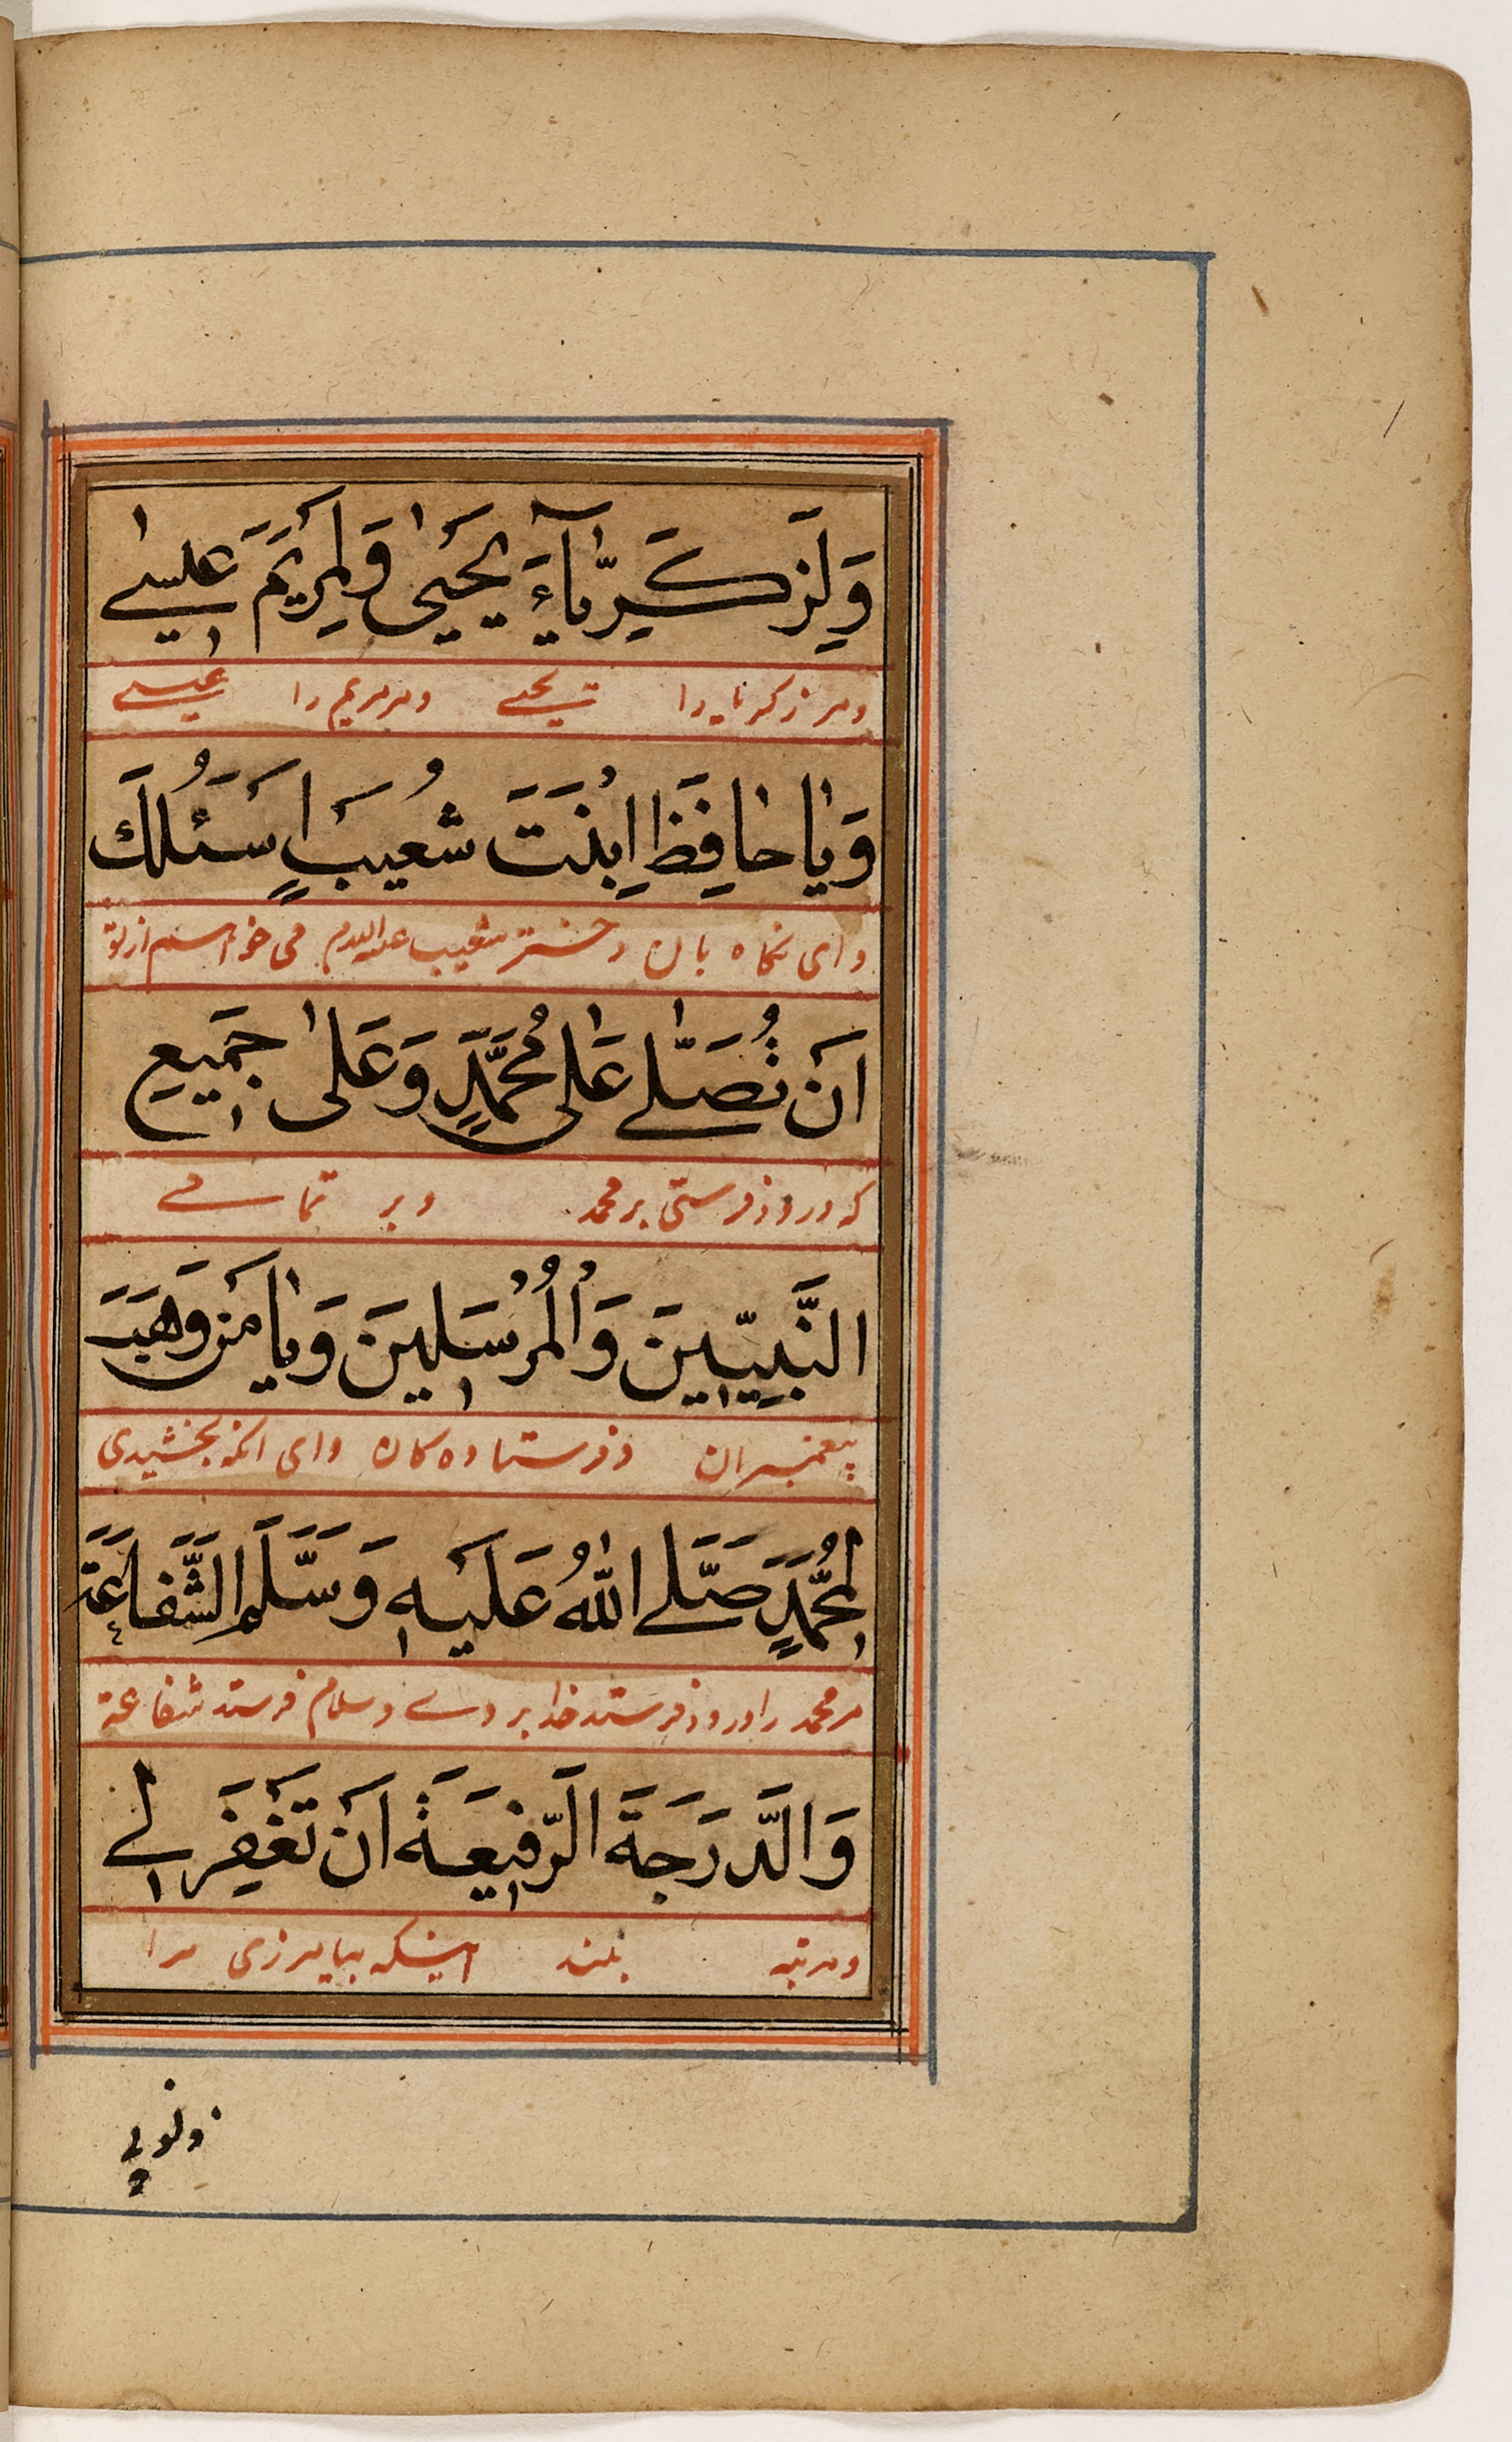 وَلِزَكَرِيَّآءَ يَحْيٰى وَلِمَرْيَمَ عِيسٰى
ومر زکریا را یحیی ومر مریم را عیسی
وَيَا حَافِظَ اِبْنَتَ شُعَيْبٍ اَسْئَلُكَ
وای نگاه بان دختر شعیب علیه السلام می خواهم از تو
اَنْ تُصَلِّيَ عَلٰى مُحَمَّدٍ وَعَلٰى جَمِيعِ
که درود فرستی بر محمد وبر تمامی
النَّبِيّينَ وَالْمُرْسَلِينَ وَيَا مَنْ وَهَبَ
پیغمبران وفرستاده کان وای آنکه بخشیدی
لِمُحَمَّدٍ صَلَّى اللّٰهُ عَلَيْهِ وَسَلَّمَ الشَّفَاعَةَ
مر محمد را درود فرستد خدا بر وی وسلام فرستد شفاعة
وَالدَّرَجَةَ الرَّفِيعَةَ اَنْ تَغْفِرَ لِي
ومرتبه بلند اینکه بیامرزی مرا
ذنوبي